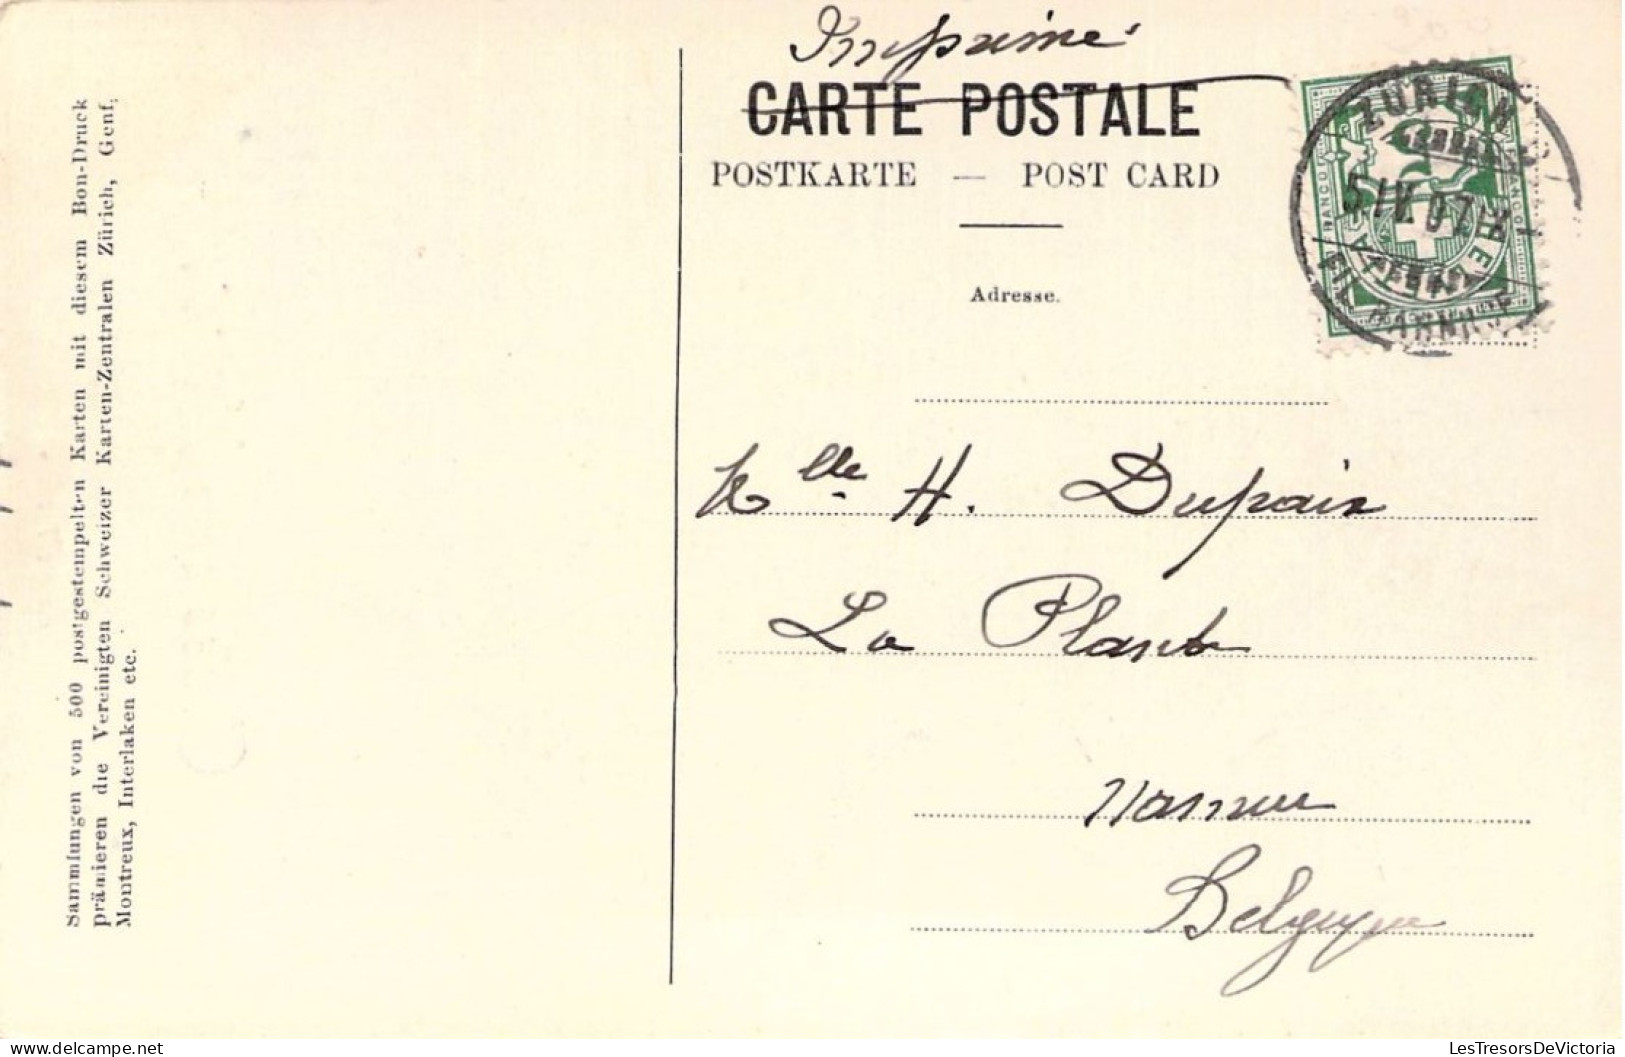 Imprimé
CARTE POSTALE
POSTKARTE — POST CARD
Adresse.
Mlle H. Dupaix
La Plante
Namur
Belgique
ZÜRICH
5.IV.07.IX
FIL. BAHNHOF
FRANCO
HELVETIA
Sammlungen von 500 postgestempelten Karten mit diesem Bon-Druck
prämieren die Vereinigten Schweizer Karten-Zentralen Zürich, Genf,
Montreux, Interlaken etc.
LesTresorsDeVictoria
delcampe.net